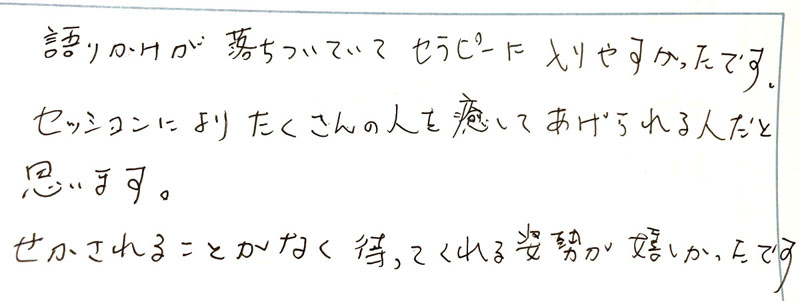 語りかけが落ちついていてセラピーに入りやすかったです。
セッションによりたくさんの人を癒してあげられる人だと
思います。
せかされることがなく待ってくれる姿勢が嬉しかったです